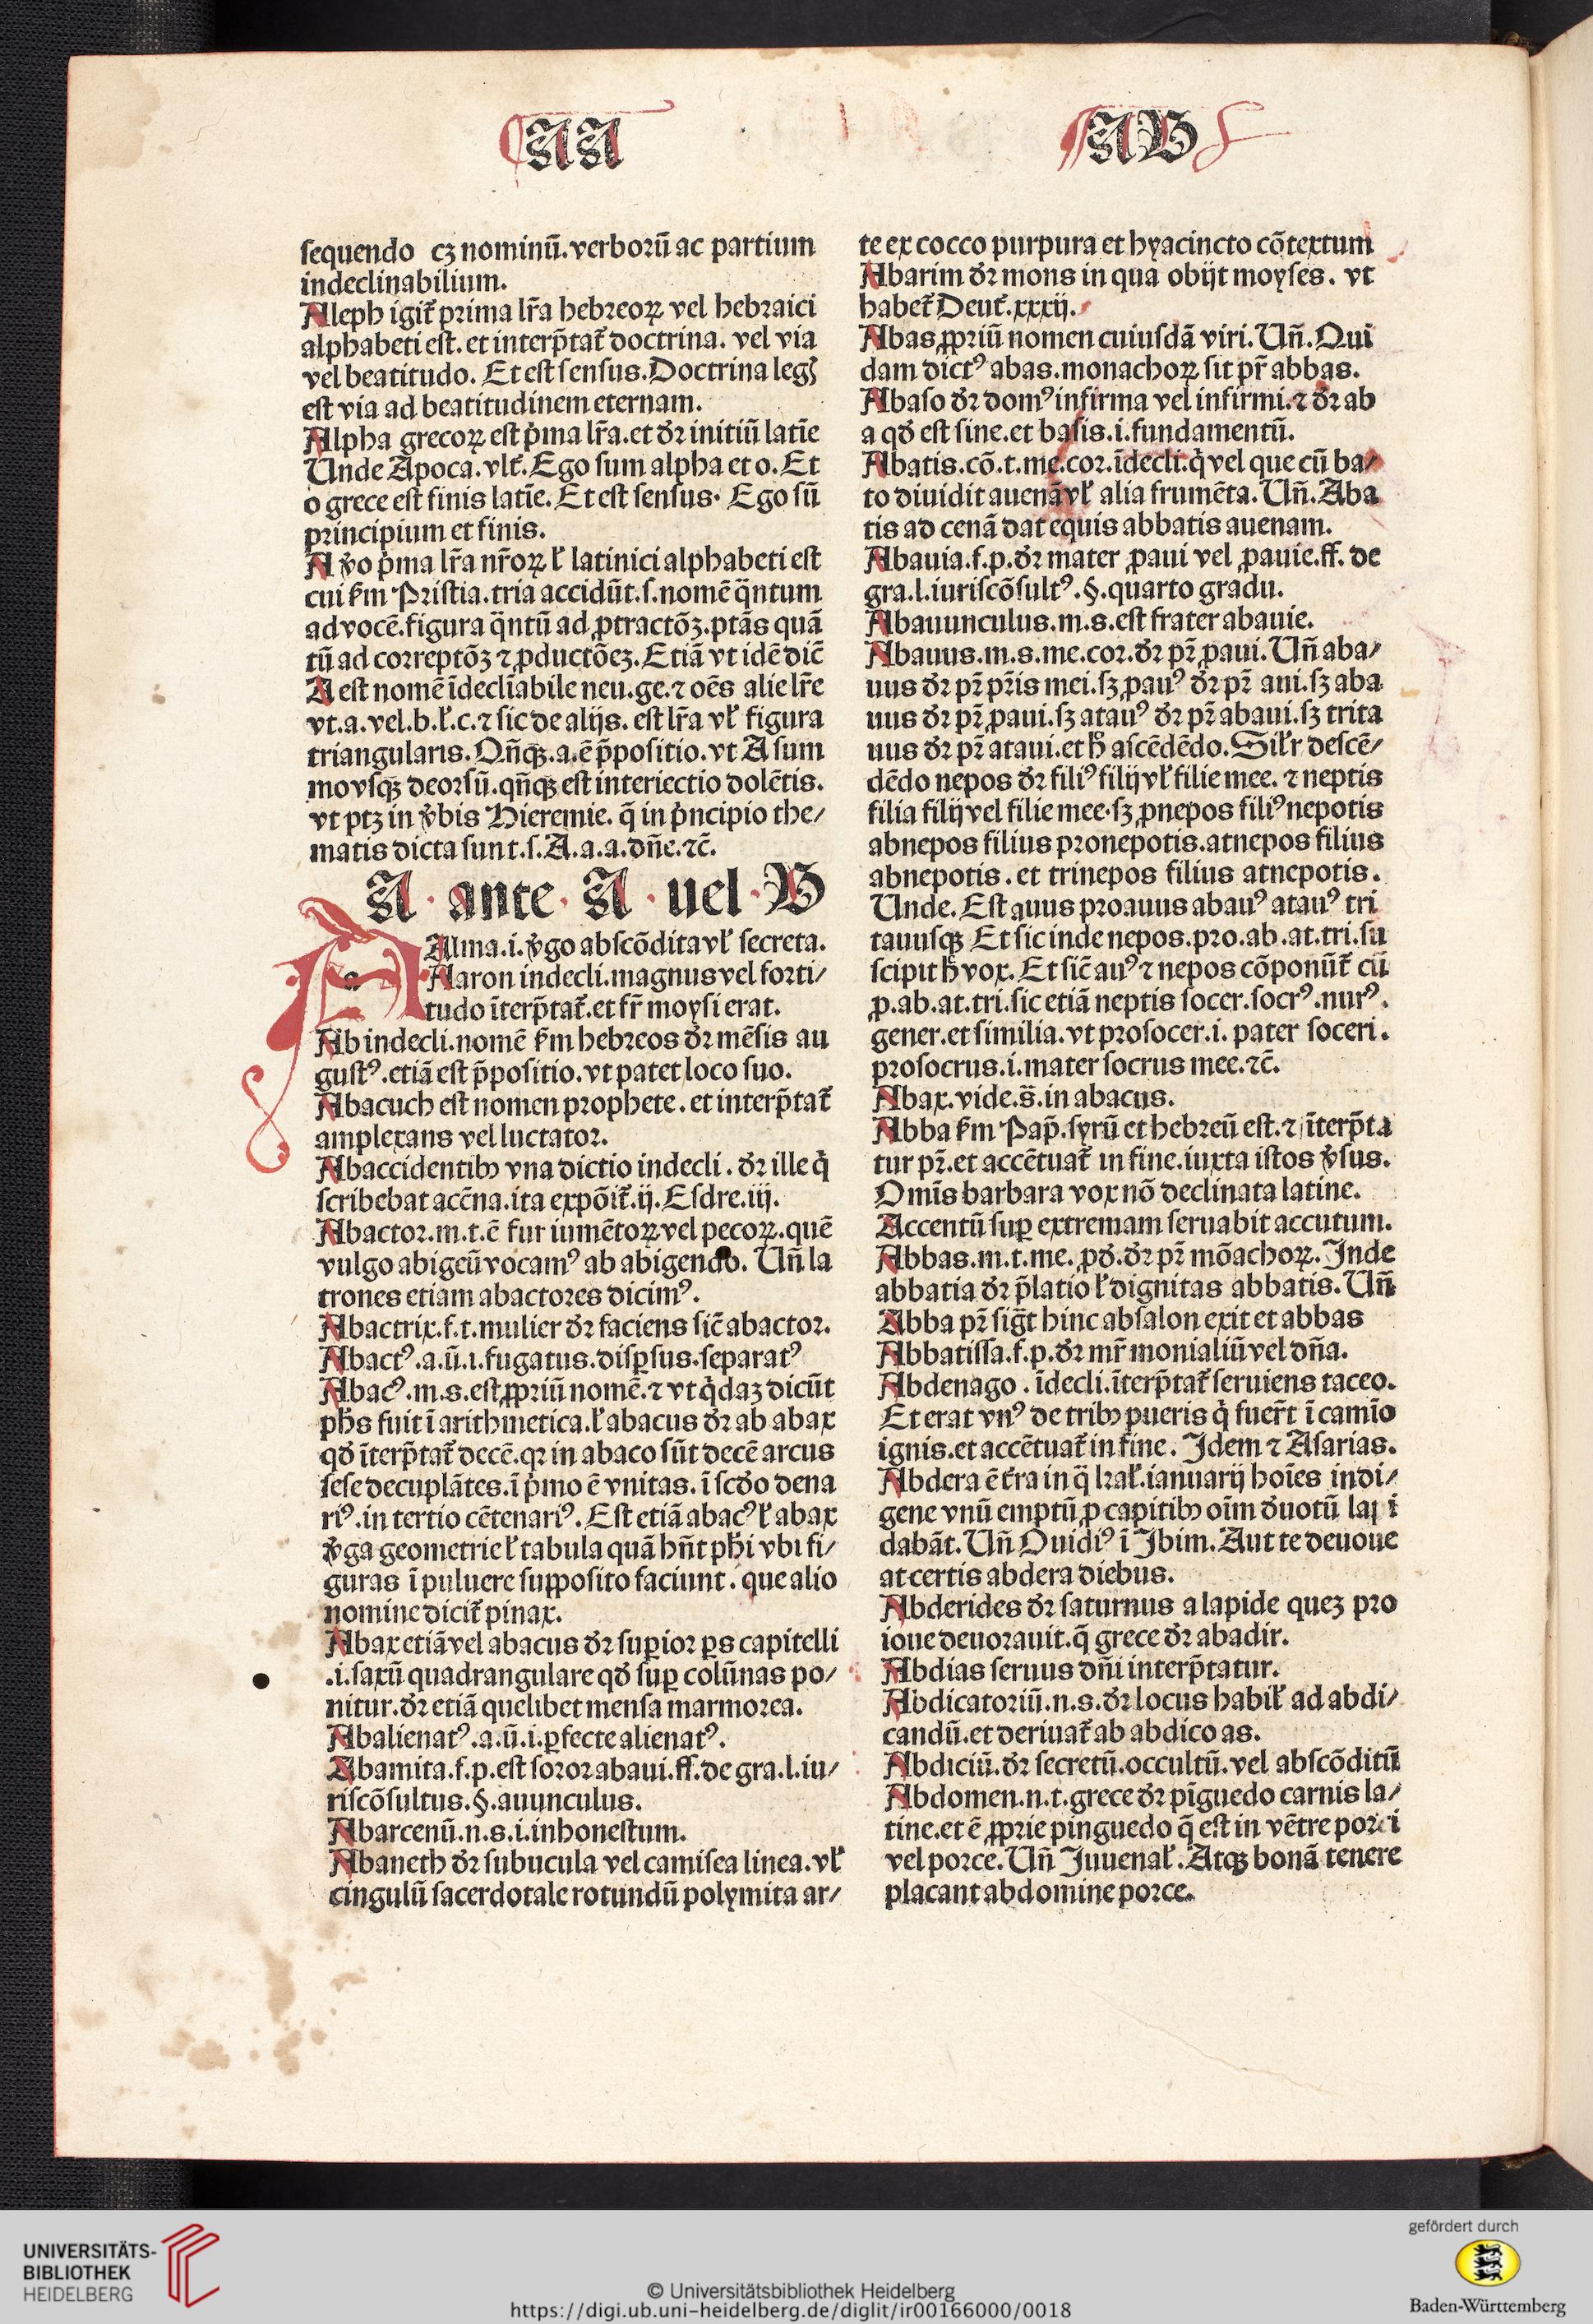 AA
AB
sequendo cꝫ nominū.verborū ac partium
indeclinabilium.
Aleph igit̄ prima lr̄a hebreoꝝ vel hebraici
alphabeti est.et interp̄tat̄ doctrina. vel via
vel beatitudo. Et est sensus.Doctrina leḡ
est via ad beatitudinem eternam.
Alpha grecoꝝ est p̍ma lr̄a.et dr̄ initiū latīe
Unde Apoca.vlt̄.Ego sum alpha et o. Et
o grece est finis latīe. Et est sensus. Ego sū
principium et finis.
A v̄o p̍ma lr̄a nr̄oꝝ ł latinici alphabeti est
cui ẜm Pristia.tria accidūt.s.nomē q̄ntum
ad vocē.figura q̄ntū ad ꝓtractōꝫ.ptās quā
tū ad correptōꝫ ⁊ ꝓductōeꝫ. Etiā vt idē dic̄
A est nomē īdeclīabile neu.ge.⁊ oēs alie lr̄e
vt.a.vel.b.ł.c.⁊ sic de alijs. est lr̄a vł figura
triangularis. Qn̄qꝫ.a.ē p̄positio.vt A sum
movsqꝫ deorsū.qn̄qꝫ est interiectio dolētis.
vt ptꝫ in v̄bis Hieremie. q̄ in p̍ncipio the/
matis dicta sunt.s.A.a.a.dn̄e.⁊c̄.
A · ante · A · uel · B
a
Alma.i.v̄go abscōdita vł secreta.
Aaron indecli.magnus vel forti/
tudo īterp̄tat̄.et fr̄ moysi erat.
Ab indecli.nomē ẜm hebreos dr̄ mēsis au
gustꝰ.etiā est p̄positio.vt patet loco suo.
Abacuch est nomen prophete. et interp̄tat̄
amplexans vel luctator.
Abaccidentibꝫ vna dictio indecli. dr̄ ille q̍
scribebat acēna.ita expōit̄.ij.Esdre.iij.
Abactor.m.t.ē fur iumētoꝝ vel pecoꝝ.quē
vulgo abigeū vocamꝰ ab abigendo. Un̄ la
trones etiam abactores dicimꝰ.
Abactrix.f.t.mulier dr̄ faciens sic̄ abactor.
Abactꝰ.a.ū.i.fugatus.disꝑsus.separatꝰ
Abacꝰ.m.s.est ꝓpriū nomē.⁊ vt q̍daꝫ dicūt
ph̄s fuit ī arithmetica.ł abacus dr̄ ab abax
qd̄ īterp̄tat̄ decē.qꝛ in abaco sūt decē arcus
sese decuplātes.ī p̍mo ē vnitas. ī scd̄o dena
riꝰ.in tertio cētenariꝰ. Est etiā abacꝰ ł abax
v̄ga geometrie ł tabula quā hn̄t ph̄i vbi fi/
guras ī puluere suꝓposito faciunt. que alio
nomine dicit̄ pinax.
Abax etiā vel abacus dr̄ suꝑior ꝑs capitelli
.i.saxū quadrangulare qd̄ suꝑ colūnas po/
nitur.dr̄ etiā quelibet mensa marmorea.
Abalienatꝰ.a.ū.i.ꝑfecte alienatꝰ.
Abamita.f.p.est soror abaui.ff.de gra.l.iu/
riscōsultus.§.auunculus.
Abarcenū.n.s.i.inhonestum.
Abaneth dr̄ subucula vel camisea linea.vł
cingulū sacerdotale rotundū polymita ar/
te ex cocco purpura et hyacincto cōtextum
Abarim dr̄ mons in qua obijt moyses. vt
habet̄ Deut̄.xxxij.
Abas ꝓpriū nomen cuiusdā viri. Un̄.Qui
dam dictꝰ abas.monachoꝝ sit pr̄ abbas.
Abaso dr̄ domꝰ infirma vel infirmi.⁊ dr̄ ab
a qd̄ est sine.et basis.i.fundamentū.
Abatis.cō.t.me.cor.īdecli.q̍ vel que cū ba/
to diuidit auenā vł alia frumēta. Un̄.Aba
tis ad cenā dat equis abbatis auenam.
Abauia.f.p.dr̄ mater ꝓaui vel ꝓauie.ff. de
gra.l.iuriscōsultꝰ.§.quarto gradu.
Abauunculus.m.s.est frater abauie.
Abauus.m.s.me.cor.dr̄ pr̄ ꝓaui. Un̄ aba/
uus dr̄ pr̄ pr̄is mei.sꝫ ꝓauꝰ dr̄ pr̄ aui.sꝫ aba
uus dr̄ pr̄ ꝓaui.sꝫ atauꝰ dr̄ pr̄ abaui.sꝫ trita
uus dr̄ pr̄ ataui.et h̄ ascēdēdo. Silr̄ descē/
dēdo nepos dr̄ filiꝰ filij vł filie mee. ⁊ neptis
filia filij vel filie mee.sꝫ ꝓnepos filiꝰ nepotis
abnepos filius pronepotis.atnepos filius
abnepotis. et trinepos filius atnepotis.
Unde. Est auus proauus abauꝰ atauꝰ tri
tauusqꝫ Et sic inde nepos.pro.ab.at.tri.su
scipit h̄ vox. Et sic̄ auꝰ ⁊ nepos cōponūt̄ cū
ꝓ.ab.at.tri.sic etiā neptis socer.socrꝰ.nurꝰ.
gener.et similia.vt prosocer.i. pater soceri.
prosocrus.i.mater socrus mee.⁊c̄.
Abax.vide.s̄.in abacus.
Abba ẜm Pap̄.syrū et hebreū est.⁊ īterp̄ta
tur pr̄.et accētuat̄ in fine.iuxta istos v̄sus.
Omīs barbara vox nō declinata latine.
Accentū suꝑ extremam seruabit accutum.
Abbas.m.t.me. ꝓd̄.dr̄ pr̄ mōachoꝝ. Inde
abbatia dr̄ p̄latio ł dignitas abbatis. Un̄
Abba pr̄ siḡt hinc absalon exit et abbas
Abbatissa.f.p.dr̄ mr̄ monialiū vel dn̄a.
Abdenago. īdecli.īterp̄tat̄ seruiens taceo.
Et erat vnꝰ de tribꝫ pueris q̍ fuer̄t ī camīo
ignis.et accētuat̄ in fine. Idem ⁊ Asarias.
Abdera ē t̄ra in q̄ kał.ianuarij hoīes indi/
gene vnū emptū ꝓ capitibꝫ oīm duotū
dabāt. Un̄ Ouidiꝰ ī Ibim. Aut te deuoue
at certis abdera diebus.
Abderides dr̄ saturnus a lapide queꝫ pro
ioue deuorauit.q̄ grece dr̄ abadir.
Abdias seruus dn̄i interp̄tatur.
Abdicatoriū.n.s.dr̄ locus habił ad abdi/
candū.et deriuat̄ ab abdico as.
Abdiciū.dr̄ secretū.occultū.vel abscōditū
Abdomen.n.t.grece dr̄ pīguedo carnis la/
tine.et ē ꝓprie pinguedo q̄ est in vētre porci
vel porce. Un̄ Juuenał. Atqꝫ bonā tenere
placant abdomine porce.
UNIVERSITÄTS-
BIBLIOTHEK
HEIDELBERG
© Universitätsbibliothek Heidelberg
https://digi.ub.uni-heidelberg.de/diglit/ir00166000/0018
gefördert durch
Baden-Württemberg